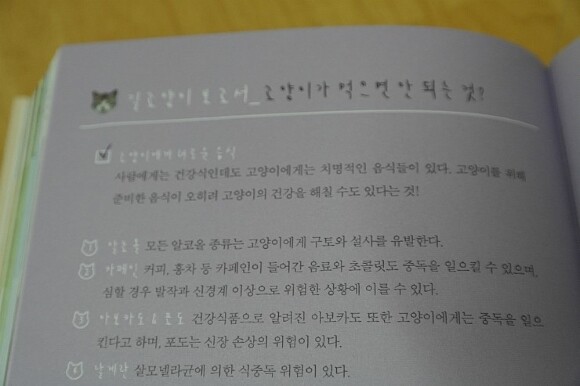 고양이가 먹으면 안 되는 것?
고양이에게 해로운 음식
사람에게는 건강식인데도 고양이에게는 치명적인 음식들이 있다. 고양이를 위해
준비한 음식이 오히려 고양이의 건강을 해칠 수도 있다는 것!
1 알코올 모든 알코올 종류는 고양이에게 구토와 설사를 유발한다.
2 카페인 커피, 홍차 등 카페인이 들어간 음료와 초콜릿도 중독을 일으킬 수 있으며,
심할 경우 발작과 신경계 이상으로 위험한 상황에 이를 수 있다.
3 아보카도&포도 건강식품으로 알려진 아보카도 또한 고양이에게는 중독을 일으
킨다고 하며, 포도는 신장 손상의 위험이 있다.
4 날계란 살모넬라균에 의한 식중독 위험이 있다.